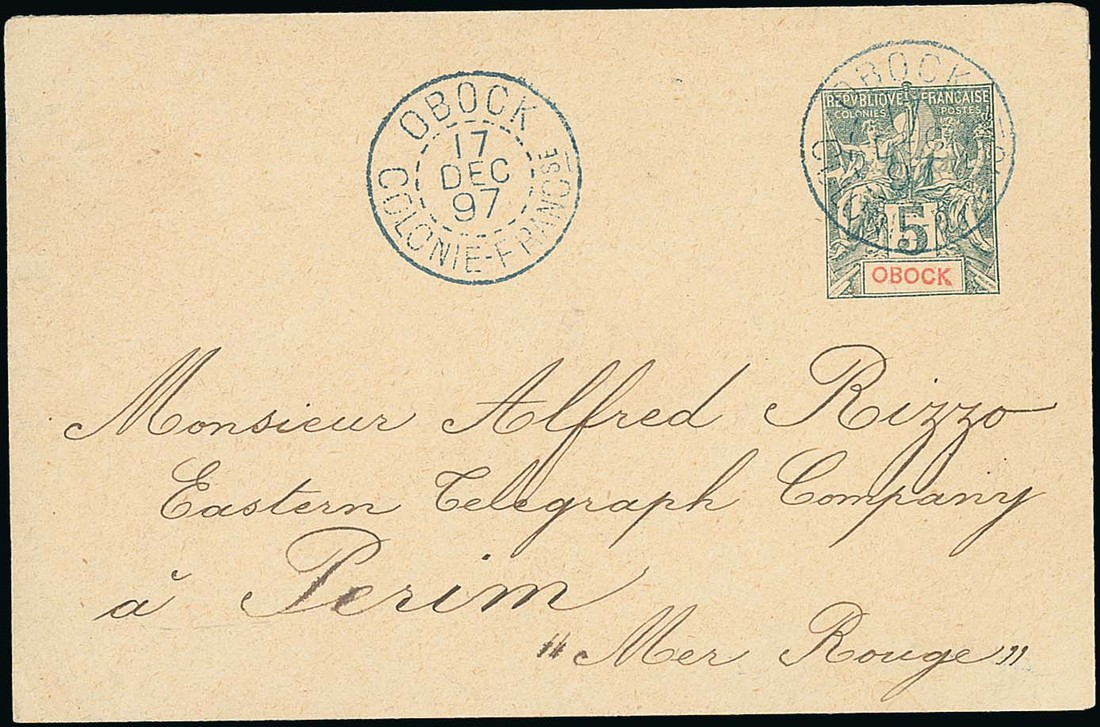 OBOCK
17
DEC
97
COLONIE-FRANÇSE
OBOCK
REPVBLIQVE FRANÇAISE
COLONIES POSTES
5
OBOCK
Monsieur Alfred Rizzo
Eastern Telegraph Company
à Perim
"Mer Rouge"